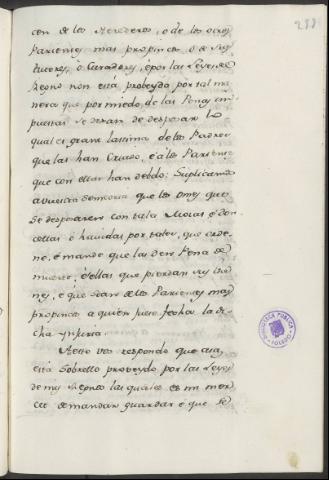 288
con de los Herederos, o de los otros
Parientes mas propincos o de sus
tutores, o Curadores, é por las Leyes de
Regno non está probeydo por tal ma
nera que por miedo de las Penas im
puestas se dexan de desposar lo
qual es grant lastima de los Padres
que las han Criado, é á los Parientes
que con ellas han debdo: Suplicamos
a vuestra Señoria que los omes que
se desposaren con tales Mozas é don
cellas é havidas por tales, que orde
ne, é mande que las den Pena de
muerte, é ellas que pierdan sus bie
nes, é que sean de los Parientes mas
propincos a quien fuere fecha la di
cha ynjuria.
A esto vos respondo que asaz
está sobrello proveydo por las Leyes
de mis Regnos las quales es mi mer
cet de mandar guardar é que se
BIBLIOTECA PUBLICA
TOLEDO